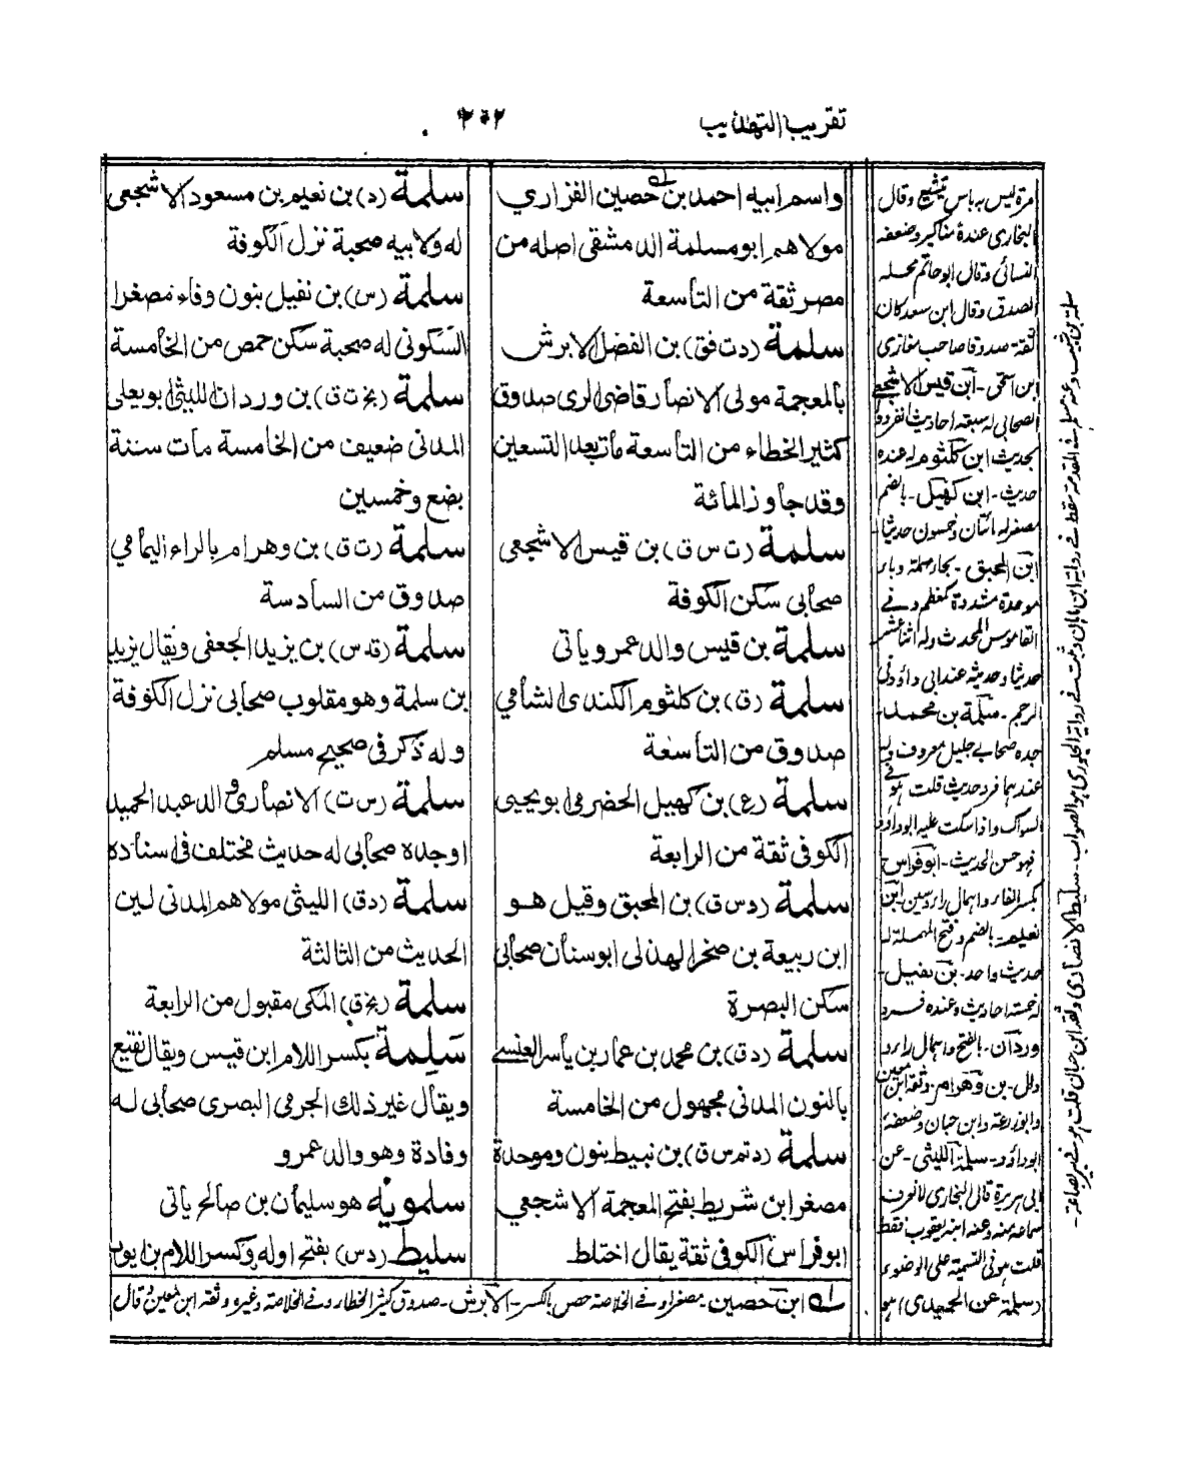 تقريب التهذيب
٢٠٢
واسم ابيه احمد بن حصين الفزاري
مولاهم ابو مسلمة الدمشقى اصله من
مصر ثقة من التاسعة
سلمة (د ت فق) بن الفضل الابرش
بالمعجمة مولى الانصار قاضى الرى صدوق
كثير الخطاء من التاسعة مات بعد التسعين
وقد جاوز المائة
سلمة (ت س ق) بن قيس الاشجعى
صحابى سكن الكوفة
سلمة بن قيس والد عمرو ياتى
سلمة (ق) بن كلثوم الكندى الشامى
صدوق من التاسعة
سلمة (ع) بن كهيل الحضرمى ابو يحيى
الكوفى ثقة من الرابعة
سلمة (د س ق) بن المحبق وقيل هو
ابن ربيعة بن صخر الهذلى ابو سنان صحابى
سكن البصرة
سلمة (د ق) بن محمد بن عمار بن ياسر العنسے
بالنون المدنى مجهول من الخامسة
سلمة (د تم س ق) بن نبيط بنون وموحدة
مصغر ابن شريط بفتح المعجمة الاشجعي
ابو فراس الكوفى ثقة يقال اختلط
سلمة (د) بن نعيم بن مسعود الاشجعى
له ولابيه صحبة نزل الكوفة
سلمة (س) بن نفيل بنون وفاء مصغرا
السكونى له صحبة سكن حمص من الخامسة
سلمة (بخ ت ق) بن وردان الليثى ابو يعلى
المدنى ضعيف من الخامسة مات سنة
بضع وخمسين
سلمة (ت ق) بن وهرام بالراء اليمامي
صدوق من السادسة
سلمة (قد س) بن يزيد الجعفى ويقال يزيد
بن سلمة وهو مقلوب صحابى نزل الكوفة
وله ذكر فى صحيح مسلم
سلمة (س ت) الانصارى والد عبد الحميد
او جده صحابى له حديث مختلف فى اسناده
سلمة (د ق) الليثى مولاهم المدنى لين
الحديث من الثالثة
سلمة (بخ ق) المكى مقبول من الرابعة
سَلِمة بكسر اللام ابن قيس ويقال نفيع
ويقال غير ذلك الجرمى البصرى صحابى له
وفادة وهو والد عمرو
سلمويه هو سليمان بن صالح ياتى
سليط (د س) بفتح اوله وكسر اللام بن ايوب
له ابن حصين - مصغرا وفى الخلاصة حصن بالكسر - الابرش - صدوق كثير الخطا وفى الخلاصة وغيره وثقه ابن معين وقال
مرة ليس به باس يتشيع وقال
البخارى عنده مناكير وضعفه
النسائى وقال ابو حاتم محله
الصدق وقال ابن سعد كان
ثقة صدوقا صاحب مغازى
ابن اسحق - ابن قيس الاشجعى
الصحابى له سبعة احاديث انفردوا
بحديث ابن كلثوم له عنده
حديث - ابن كهيل - بالضم
مصغر له مائتان وخمسون حديثا -
ابن المحبق - بحاء مهملة وباء
موحدة مشددة كمعظم وفے
القاموس المحدث وله اثنا عشر
حديثا وحديثه عند ابى داؤد فى
الرجم - سلمة بن محمد -
جده صحابے جليل معروف له
عندهما فرد حديث قلت هو فے
السواك واذا سكت عليه ابو داؤد
فهو حسن الحديث - ابو فراس
بكسر الفاء واهمال راء وسين ابن
نعيم - بالضم وفتح المهملة له
حديث واحد - بن نفيل -
له خمسة احاديث وعنده فرد
وردان - بالفتح واهمال راء و
دال - بن وهرام - وثقه ابن معين
وابو زرعة وابن حبان وضعفه
ابو داؤد - سلمة الليثى - عن
ابى هريرة قال البخارى لا نعرف
سماعه منه وعنه ابنه يعقوب فقط
قلت هو فى التسمية على الوضوء
(سلمة عن الجعدى) هو
سلمة بن شبيب وعنه مسلم فے المقدمة سقط فے رواية ابن ماهان وثبت فے رواية الجلودى هو الصواب - سليط الانصارى وثقه ابن حبان قلت هو فے بير بضاعة -